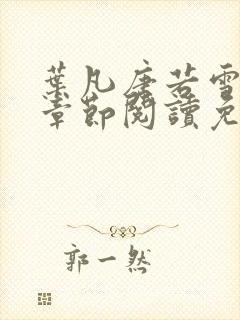 葉凡唐若雪
章節閱讀免
郭一然